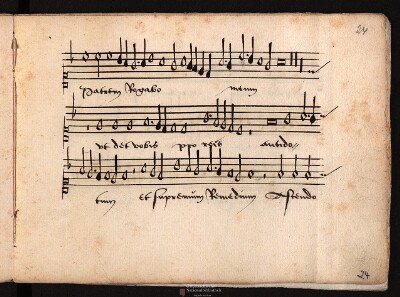 24
Patrem Rogabo meum
ut det vobis pro rebus antido//
tum et supremum Remedium Ostendo
24